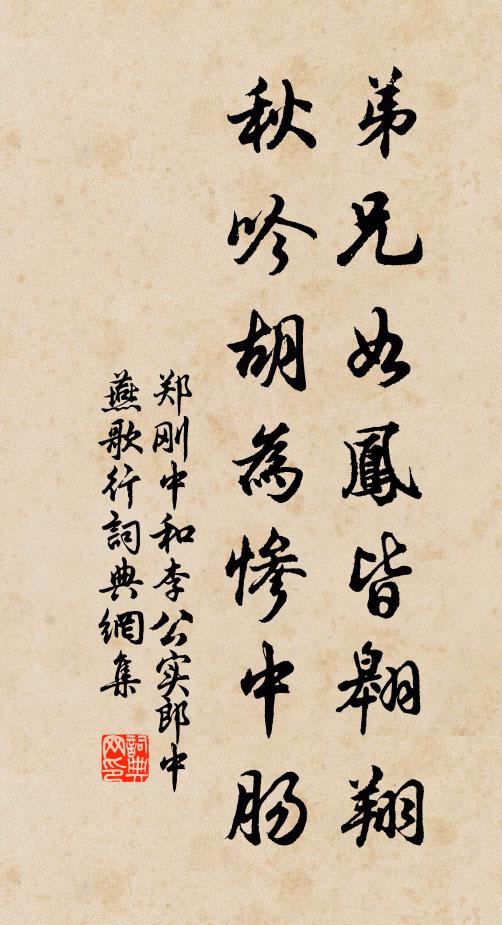 弟兄如鳳皆翱翔
秋吟胡為慘中腸
郑刚中和李公实郎中
燕歌行詞典網集
詞典
网印